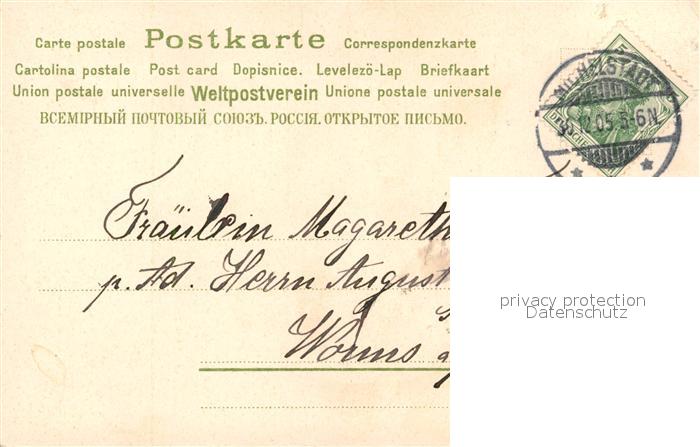 Carte postale Postkarte Correspondenzkarte
Cartolina postale Post card Dopisnice. Levelezö-Lap Briefkaart
Union postale universelle Weltpostverein Unione postale universale
ВСЕМІРНЫЙ ПОЧТОВЫЙ СОЮЗЪ. РОССІЯ. ОТКРЫТОЕ ПИСЬМО.
MICHELSTADT
05. 5-6N
Fräulein Magareth
p. Ad. Herrn August
Worms
privacy protection
Datenschutz